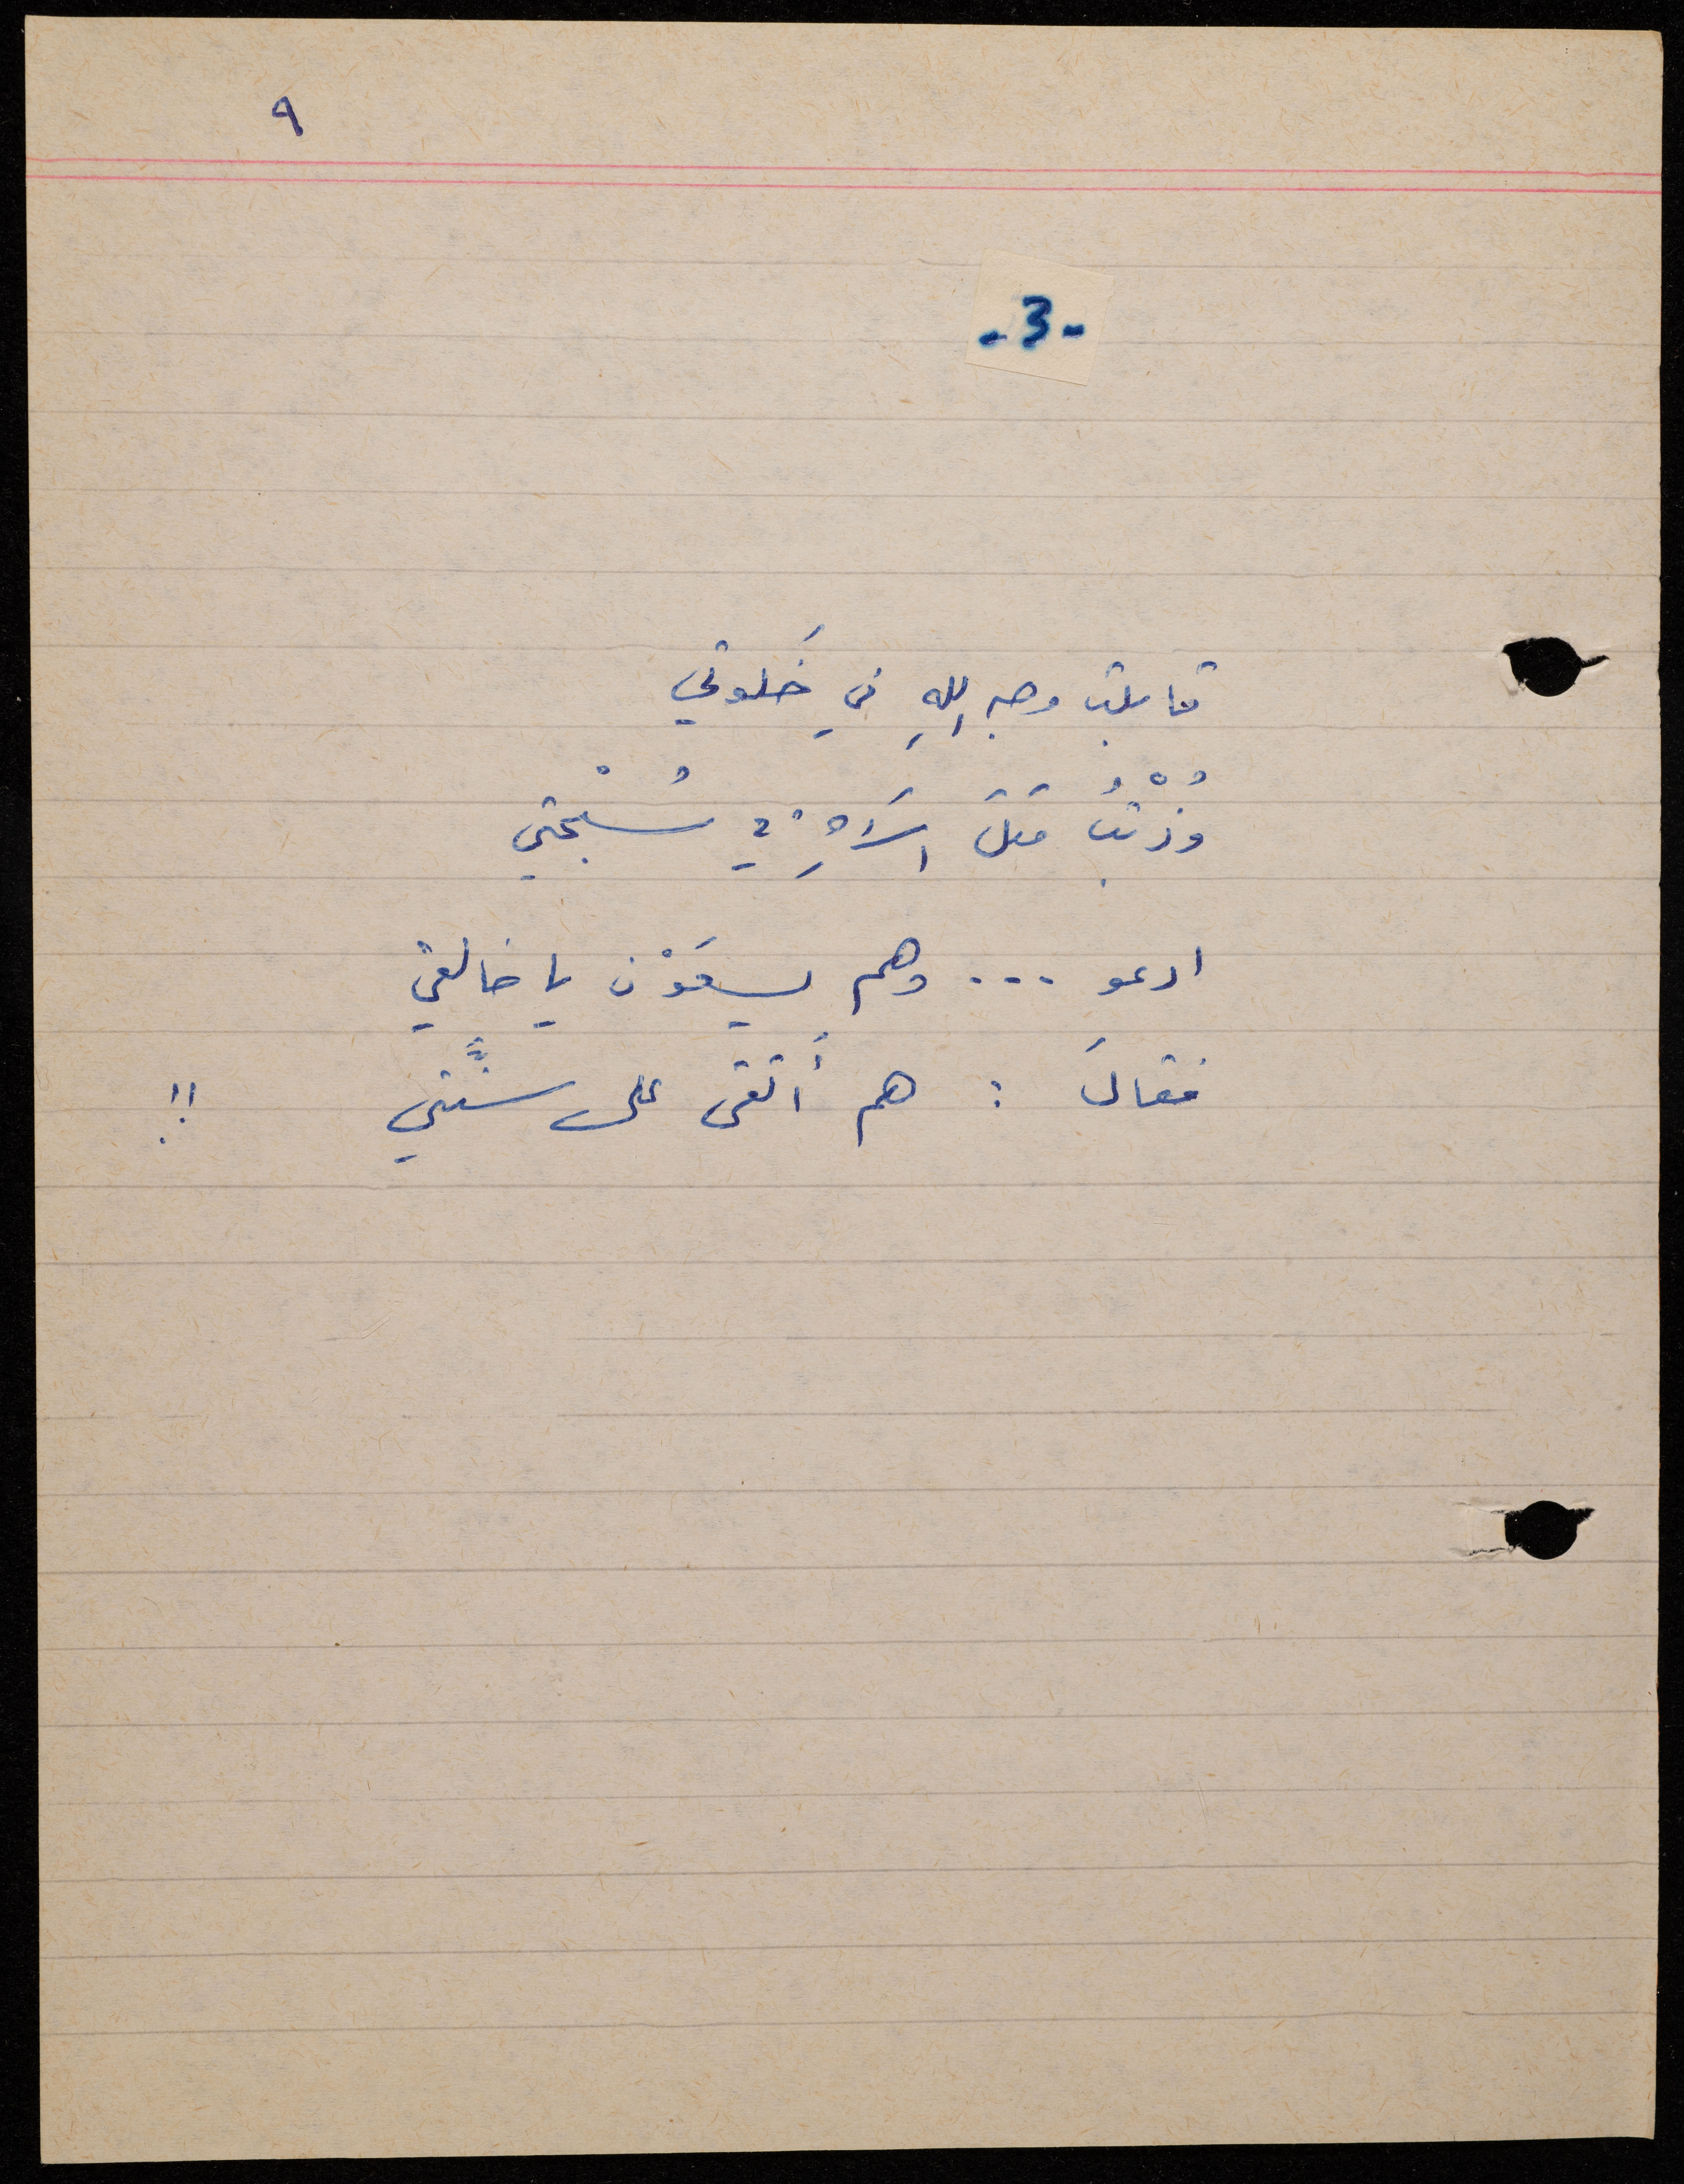 ٩
- 3 -
قابلت وجه اللهِ في خَلوتي
وذُبْتُ مثلَ السرِّ في سُبْحتي
ادعو ... وهم يسعَوْن يا خالقي
فقالَ : هم أَتقى على سنَّتي !!